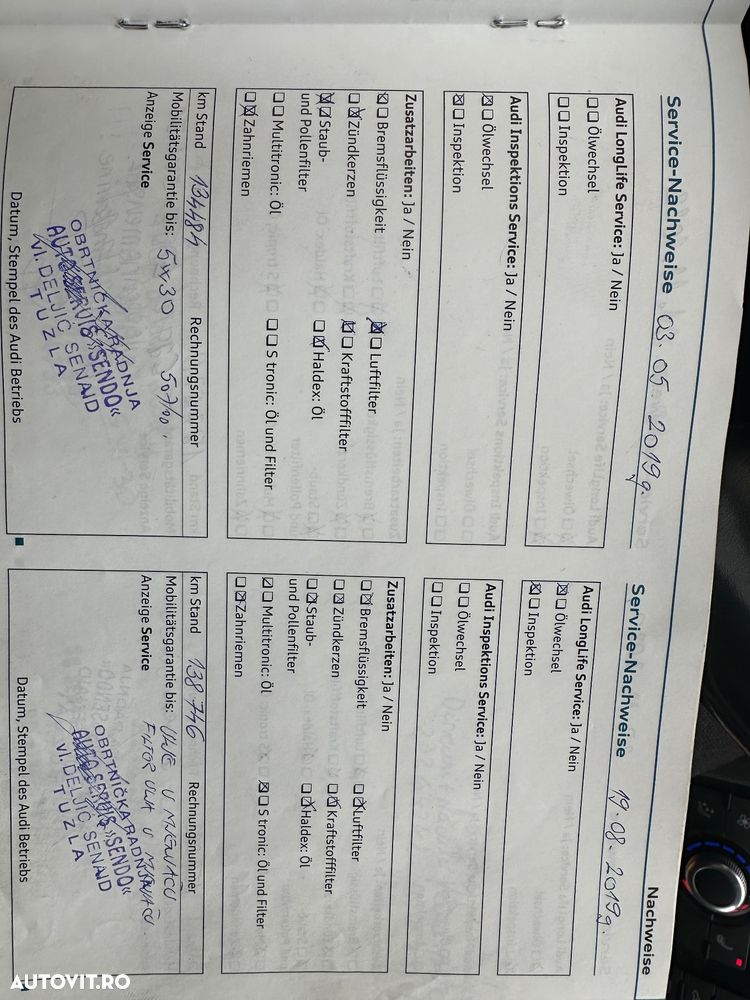 Nachweise
Service-Nachweise 03.05.2019g.
Audi LongLife Service: Ja / Nein
☐☐ Ölwechsel
☐☐ Inspektion
Audi Inspektions Service: Ja / Nein
☒☐ Ölwechsel
☒☐ Inspektion
Zusatzarbeiten: Ja / Nein
☒☐ Bremsflüssigkeit
☐☒ Zündkerzen
☒☐ Staub-
und Pollenfilter
☐☐ Multitronic: Öl
☐☒ Zahnriemen
☒☐ Luftfilter
☒☐ Kraftstofffilter
☐☒ Haldex: Öl
☐☐ S tronic: Öl und Filter
km Stand 134484 Rechnungsnummer
Mobilitätsgarantie bis: 5w30
Anzeige Service
OBRTNIČKA RADNJA
AUTOSERVIS »SENDO«
vl. DELJIĆ SENAID
TUZLA
Datum, Stempel des Audi Betriebs
Service-Nachweise 19.08.2019g.
Audi LongLife Service: Ja / Nein
☒☐ Ölwechsel
☒☐ Inspektion
Audi Inspektions Service: Ja / Nein
☐☐ Ölwechsel
☐☐ Inspektion
Zusatzarbeiten: Ja / Nein
☐☒ Bremsflüssigkeit
☐☒ Zündkerzen
☐☒ Staub-
und Pollenfilter
☒☐ Multitronic: Öl
☐☒ Zahnriemen
☐☒ Luftfilter
☐☒ Kraftstofffilter
☐☒ Haldex: Öl
☒☐ S tronic: Öl und Filter
km Stand 138746 Rechnungsnummer
Mobilitätsgarantie bis: ULJE U MJENJAČU
Anzeige Service FILTOR ULJA U MJENJAČU
OBRTNIČKA RADNJA
AUTOSERVIS »SENDO«
vl. DELJIĆ SENAID
TUZLA
Datum, Stempel des Audi Betriebs
AUTOVIT.RO